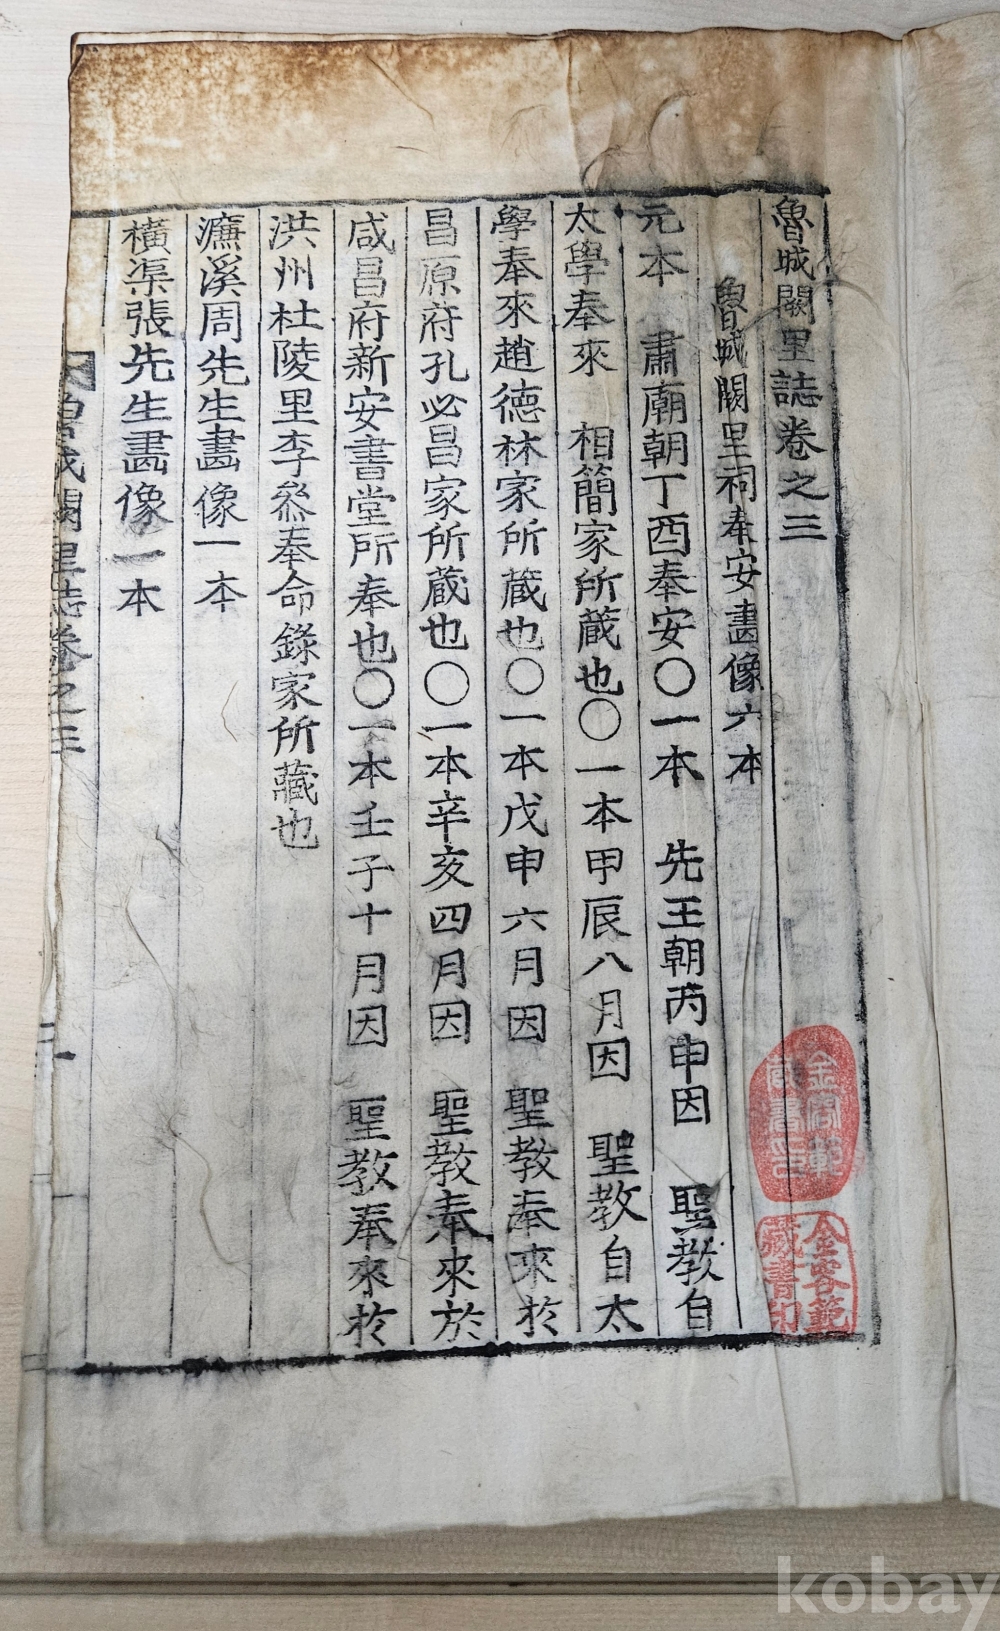 魯城闕里誌卷之三
魯城闕里祠奉安畵像六本
元本 肅廟朝丁酉奉安〇一本 先王朝丙申因 聖教自
太學奉來 相簡家所蔵也〇一本甲辰八月因 聖教自太
學奉來趙德林家所蔵也〇一本戊申六月因 聖教奉來於
昌原府孔必昌家所蔵也〇一本辛亥四月因 聖教奉來於
咸昌府新安書堂所奉也〇一本壬子十月因 聖教奉來於
洪州杜陵里李叅奉命錄家所藏也
濂溪周先生畵像一本
橫渠張先生畵像一本
魯城闕里誌卷之三
一
金容範
藏書印
金容範
藏書印
kobay